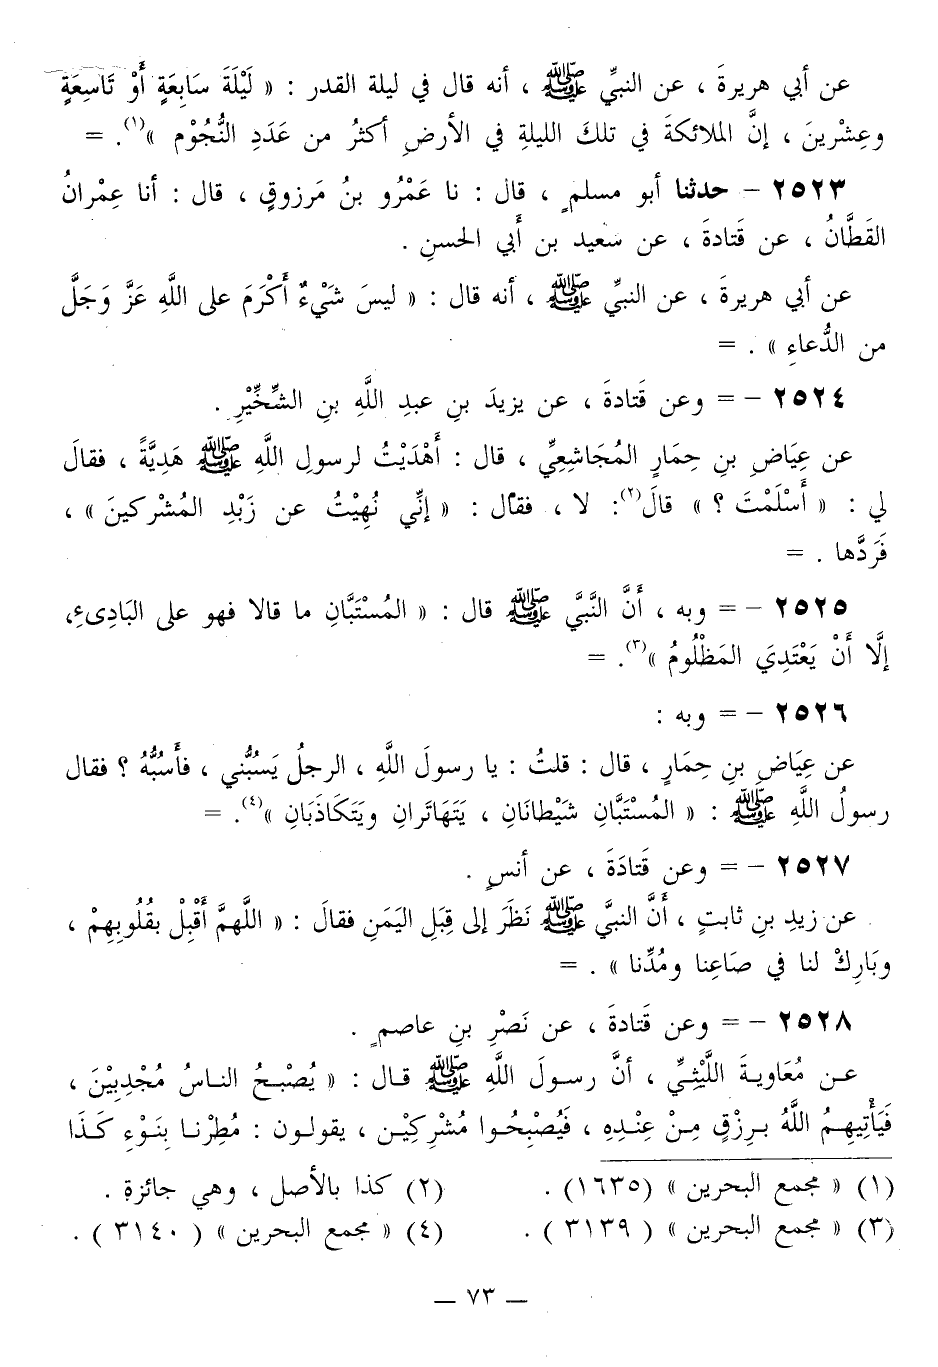 عن أبي هريرةَ ، عن النبيِّ ﷺ ، أنه قال في ليلة القدر : « لَيْلَةَ سَابِعَةٍ أَوْ تَاسِعَةٍ
وعِشْرينَ ، إنَّ الملائكةَ في تلكَ الليلةِ في الأرضِ أكثرُ من عَدَدِ النُّجُوْم »(١). =
٢٥٢٣ – حدثنا أبو مسلمٍ ، قال : نا عَمْرُو بنُ مَرزوقٍ ، قال : أنا عِمْرانُ
القَطَّانُ ، عن قَتادةَ ، عن سَعيد بن أَبي الحسنِ .
عن أبي هريرةَ ، عن النبيِّ ﷺ ، أنه قال : « ليسَ شَيْءٌ أَكْرَمَ على اللَّهِ عَزَّ وَجَلَّ
من الدُّعاءِ » . =
٢٥٢٤ – = وعن قَتادةَ ، عن يزيدَ بنِ عبدِ اللَّهِ بنِ الشِّخِّيْرِ .
عن عِيَاضِ بنِ حِمَارٍ المُجَاشِعِيِّ ، قال : أَهْدَيْتُ لرسولِ اللَّهِ ﷺ هَدِيَّةً ، فقالَ
لي : « أَسْلَمْتَ ؟ » قالَ(٢): لا ، فقال : « إنِّي نُهِيْتُ عن زَبْدِ المُشْركينَ » ،
فَرَدَّها . =
٢٥٢٥ – = وبه ، أَنَّ النَّبيَّ ﷺ قال : « المُسْتَبَّانِ ما قالا فهو على البَادِىءِ،
إلَّا أَنْ يَعْتَدِيَ المَظْلُومُ »(٣). =
٢٥٢٦ – = وبه :
عن عِيَاضِ بنِ حِمَارٍ ، قال : قلتُ : يا رسولَ اللَّهِ ، الرجلُ يَسُبُّني ، فأَسُبُّهُ ؟ فقال
رسولُ اللَّهِ ﷺ : « المُسْتَبَّانِ شَيْطانَانِ ، يَتَهَاتَرانِ ويَتَكَاذَبَانِ »(٤). =
٢٥٢٧ – = وعن قَتادَةَ ، عن أنسٍ .
عن زيدِ بنِ ثابتٍ ، أَنَّ النبيَّ ﷺ نَظَرَ إلى قِبَلِ اليَمَنِ فقالَ : « اللَّهمَّ أَقْبِلْ بقُلُوبِهِمْ ،
وبَارِكْ لنا في صَاعِنا ومُدِّنا » . =
٢٥٢٨ – = وعن قَتادةَ ، عن نَصْرِ بنِ عاصمٍ .
عـن مُعَاويـةَ اللَّيْثِيِّ ، أنَّ رسـولَ اللَّهِ ﷺ قـال : « يُصْبـحُ النـاسُ مُجْدِبِيْنَ ،
فَيَأْتِيهِـمُ اللَّهُ بـرِزْقٍ مِـنْ عِنْـدِهِ ، فَيُصْبِحُـوا مُشْرِكِيْـن ، يقولـون : مُطِرْنـا بنَـوْءِ كَـذَا
(١) « مجمع البحرين » (١٦٣٥) .
(٢) كذا بالأصل ، وهي جائزة .
(٣) « مجمع البحرين » ( ٣١٣٩ ) .
(٤) « مجمع البحرين » ( ٣١٤٠ ) .
— ٧٣ —